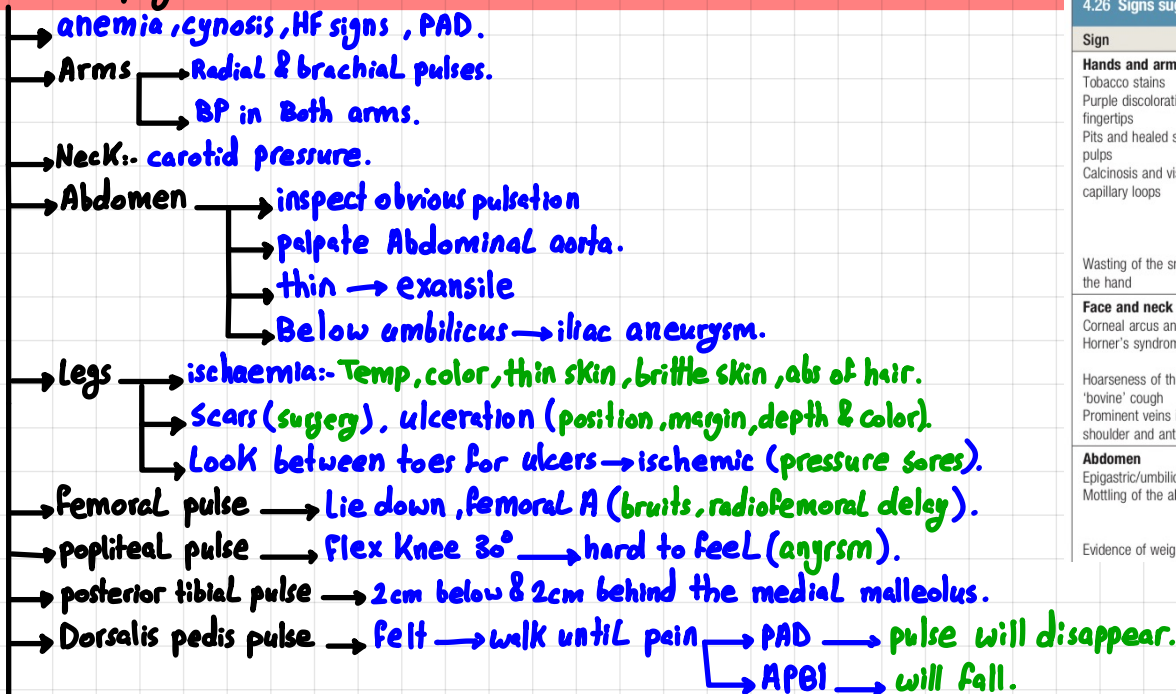 anemia, cynosis, HF signs, PAD.
Arms → Radial & brachial pulses.
→ BP in Both arms.
Neck:- carotid pressure.
Abdomen → inspect obvious pulsation
→ palpate Abdominal aorta.
→ thin → exansile
→ Below umbilicus → iliac aneurysm.
Legs → ischaemia:- Temp, color, thin skin, brittle skin, abs of hair.
→ Scars (surgery), ulceration (position, margin, depth & color).
→ Look between toes for ulcers → ischemic (pressure sores).
Femoral pulse → Lie down, femoral A (bruits, radiofemoral delay).
popliteal pulse → Flex Knee 30° → hard to feel (angrsm).
posterior tibial pulse → 2cm below & 2cm behind the medial malleolus.
Dorsalis pedis pulse → felt → walk until pain → PAD → pulse will disappear.
→ APBI → will fall.
4.26 Signs
Sign
Hands and arm
Tobacco stains
Purple
fingertips
Pits and healed
pulps
Calcinosis and
capillary loops
Wasting of the
the hand
Face and neck
Corneal arcus
Horner's
Hoarseness of
'bovine' cough
Prominent veins
shoulder and
Abdomen
Mottling of the
Evidence of